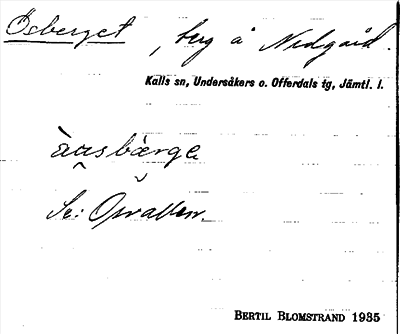 Åsberget, berg å Nedgård.
Kalls sn, Undersåkers o. Offerdals tg, Jämtl. l.
àusbærge
Se: Osvallen.
BERTIL BLOMSTRAND 1935